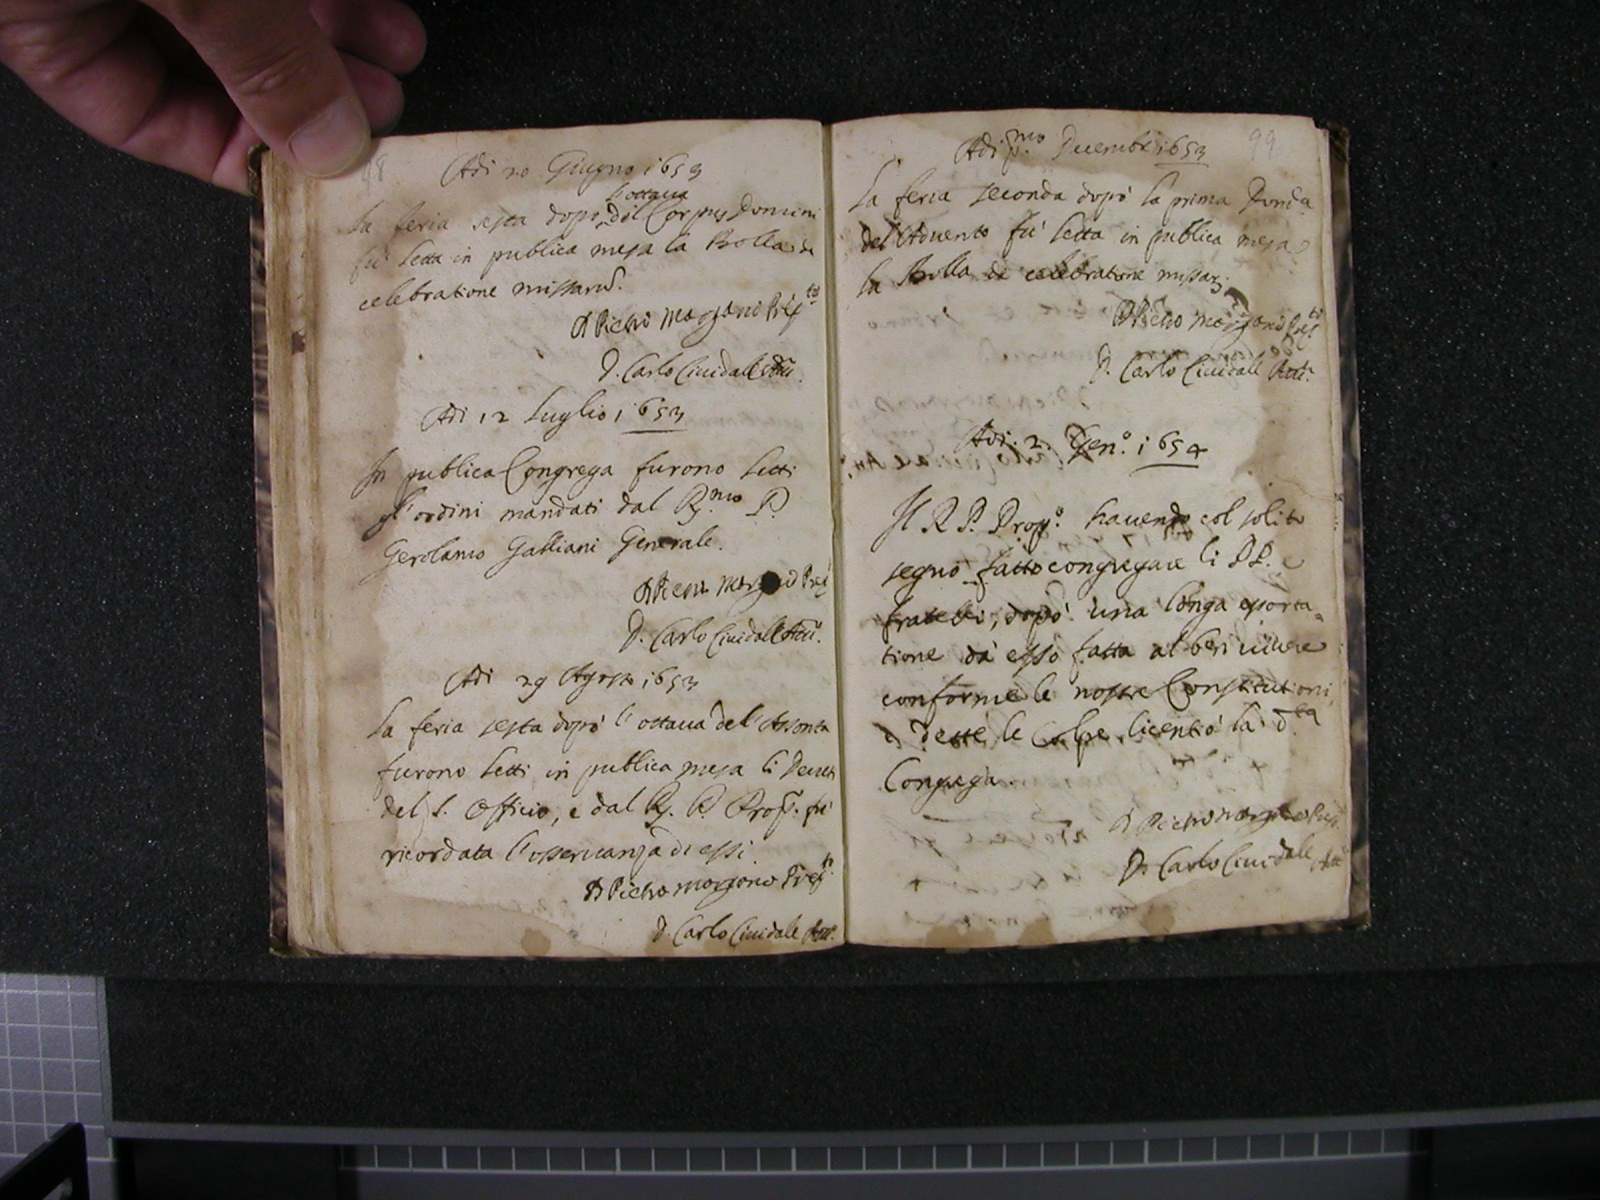 98
Adi 20 Giugno 1653
l'ottava
La feria sesta dopo del Corpus Domini
fu letta in publica mesa la Bolla de
celebratione missarũ.
D. Pietro Morzano Prepto
D. Carlo Cividale Attu.
Adi 12 Luglio 1653
In publica Congrega furono letti
gl'ordini mandati dal R.mo P.
Gerolamo Galliani Generale.
D. Pietro Prep
D. Carlo Cividale Attu.
Adi 29 Agosto 1653
La feria sesta dopò l'ottava del Assonta
furono letti in publica mesa li Decreti
del S. Officio, e dal R. P. Prop. fu
ricordata l'osservanza di essi.
D. Pietro Morzano Prepto
D. Carlo Cividale Attu.
99
Adi p.mo Decembr 1653
La feria seconda dopò la prima Domca
del'Advento fu letta in publica mesa
la Bolla de celebratione missarz
D. Pietro Morzano Prepto
D. Carlo Cividale Attu.
Adi. 2. Gen.o 1654
Il R. P. Prop.o havendo col solito
segno fatto congregare li PP. e
fratelli, dopò una longa essorta=
tione da esso fatta al ben vivere
conforme le nostre Constitutioni,
e dette le Colpe licentiò la d.ta
Congrega.
D. Pietro Prep
D. Carlo Cividale Attu